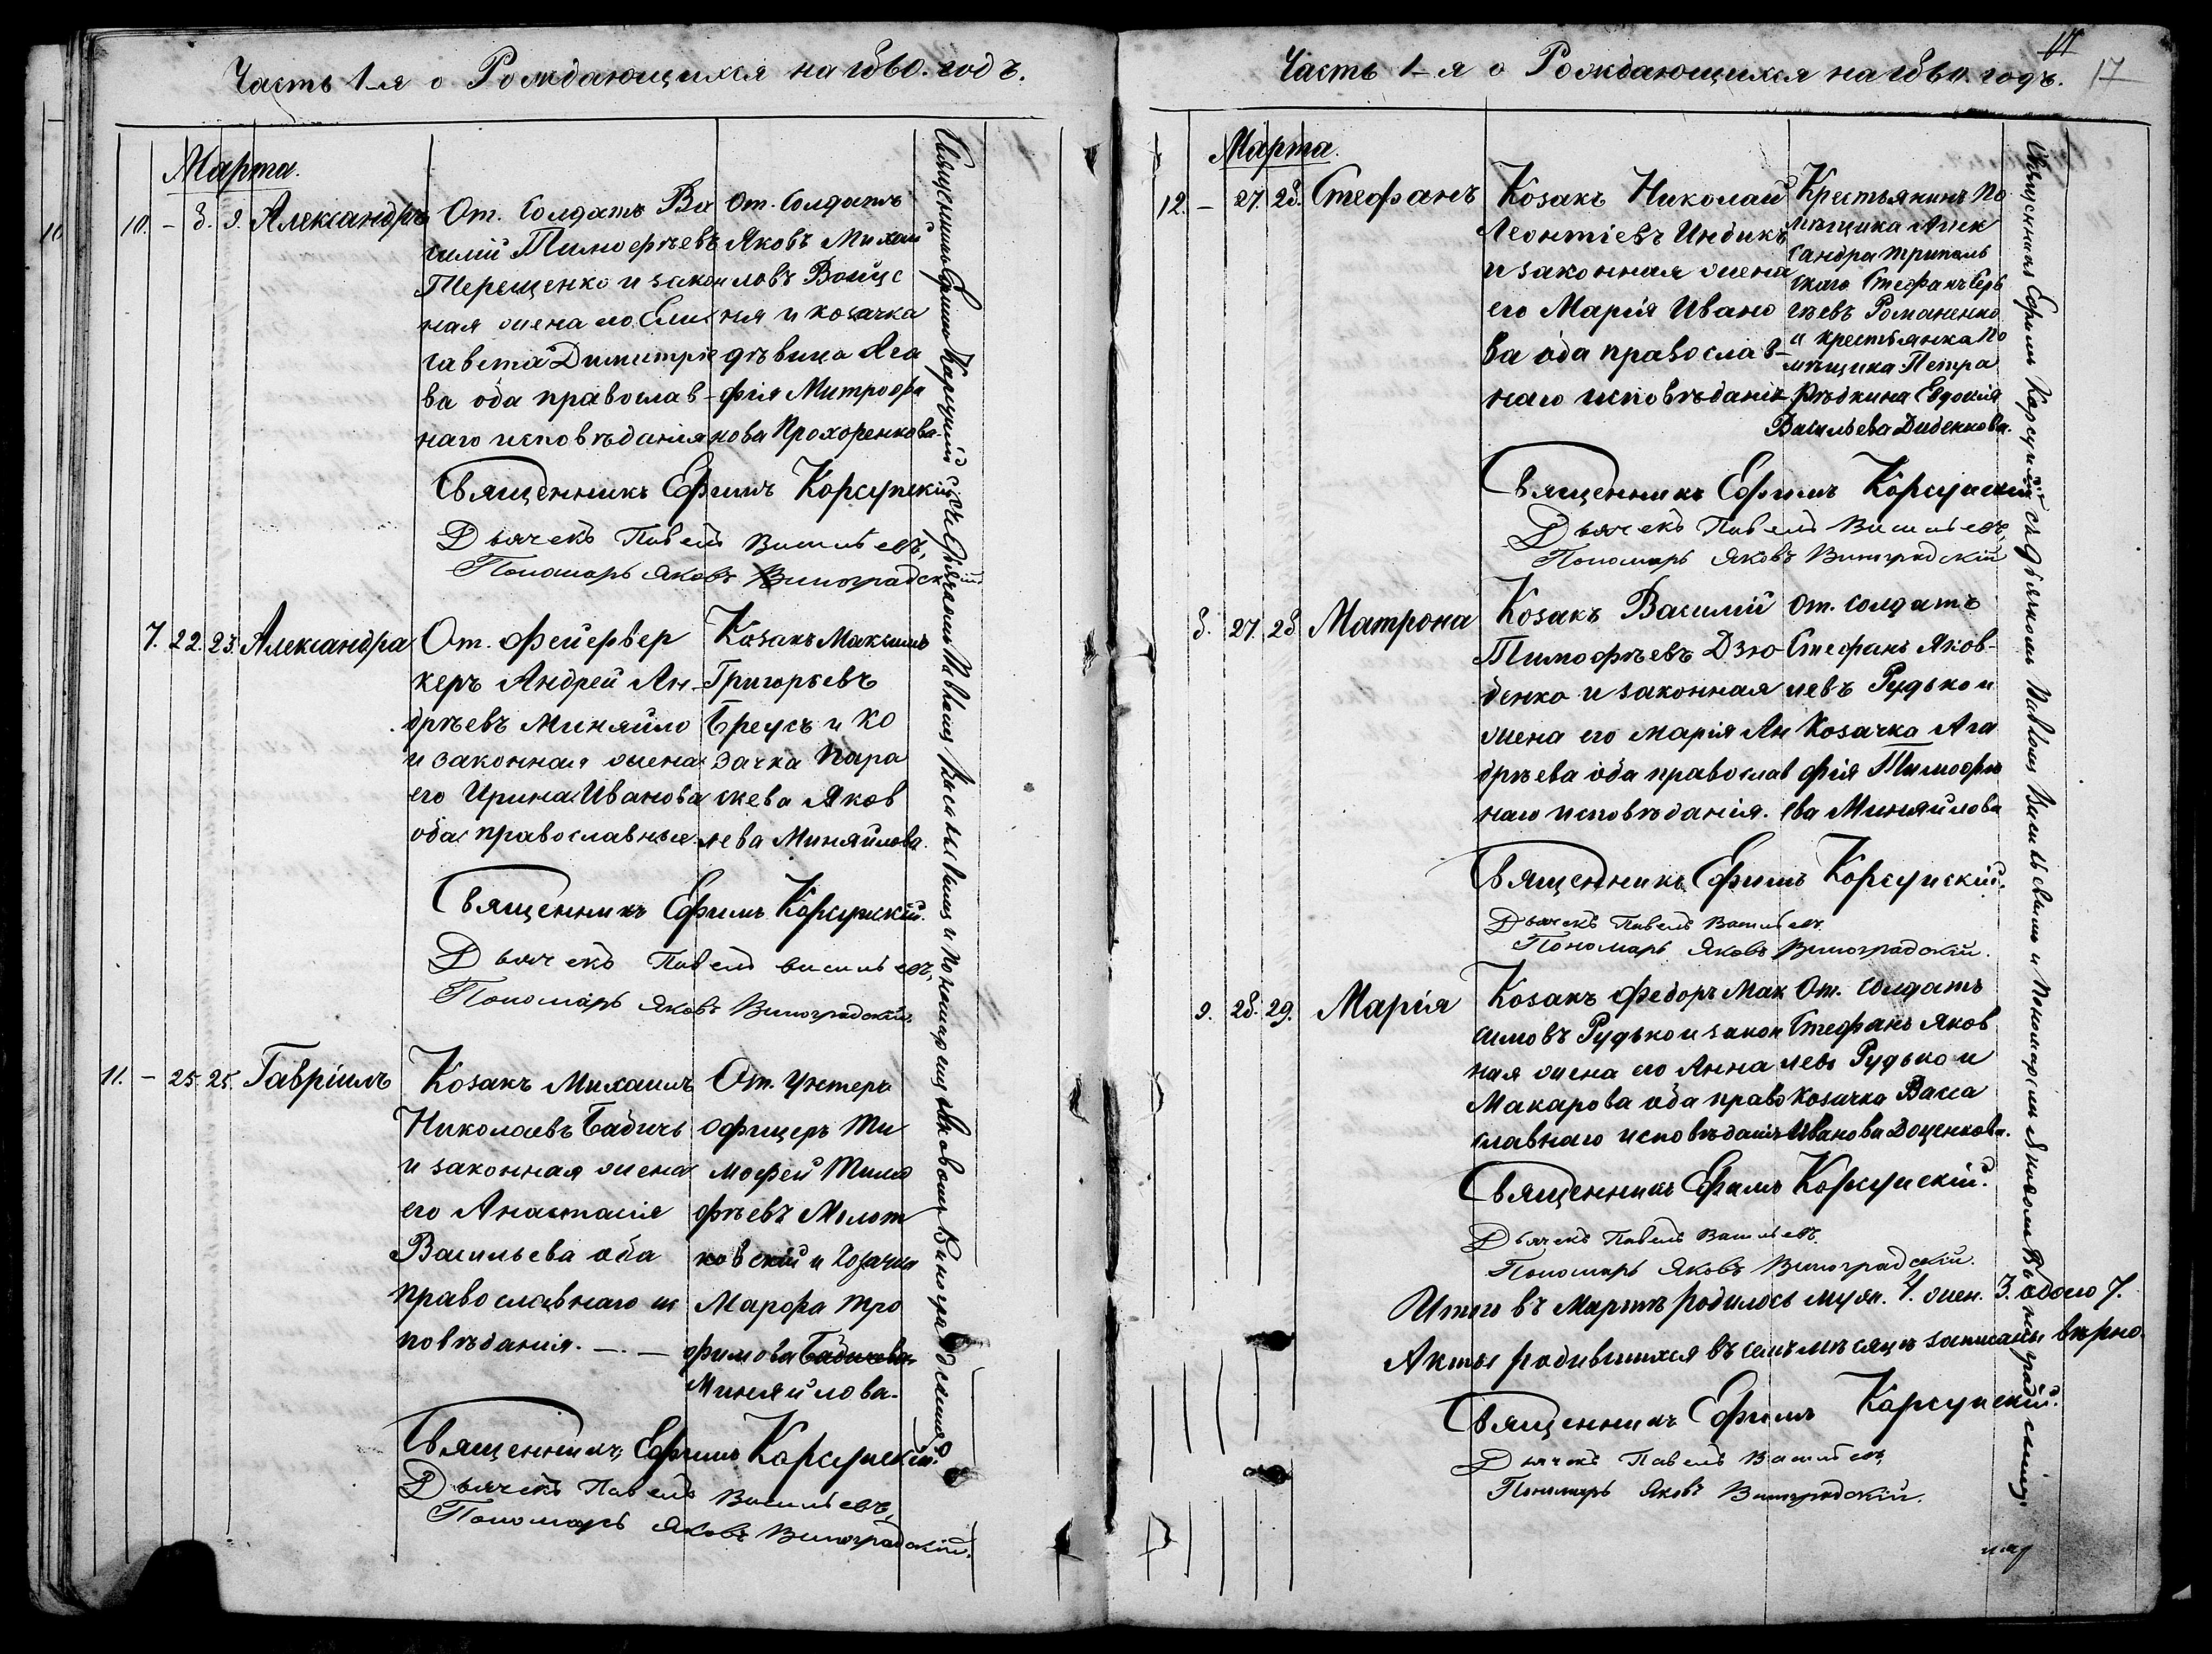 Часть 1-я о Рождающихся на 1860. годъ.
Марта.
10
10. - 8. 9. Александръ
От. Солдатъ Ва
силій Тимофѣевъ
Терещенко и закон
ная жена его Ели
савета Димитріе
ва оба православ-
наго исповѣданія
От. Солдатъ
Яковъ Михаи
ловъ Воице
ня и козачка
дѣвица Ага
фія Митрофа
нова Прохоренкова.
Священникъ Ефимъ Корсунскій
Дьячекъ Павелъ Васильевъ,
Пономарь Яковъ Виноградскій
7. 22. 23. Александра
От. Фейервер
керъ Андрей Ан-
дрѣевъ Миняйло
и законная жена
его Ирина Иванова
оба православные.
Козакъ Максимъ
Григорьевъ
Бреусъ и Ко
зачка Пара
скева Яков
лева Миняйлова.
Священникъ Ефимъ Корсунскій.
Дьячекъ Павелъ Васильевъ,
Пономарь Яковъ Виноградскій.
11. - 25. 25. Гавріилъ
Козакъ Михаилъ
Николаевъ Бабичъ
и законная жена
его Анастасія
Васильева оба
православнаго ис
повѣданія. —. —
От. Унтеръ
Офицеръ Ти
мофей Тимо
фѣевъ Молот
ковскій и Козачка
Марфа Тро
фимова Бабичева
Миняйлова.
Священникъ Ефимъ Корсунскій.
Дьячекъ Павелъ Васильевъ,
Пономарь Яковъ Виноградскій.
Священникъ Ефимъ Корсунскій съ Дьячкомъ Павломъ Васильевымъ и Пономаремъ Яковомъ Виноградскимъ
Часть 1-я о Рождающихся на 1860. годъ.
17
Марта.
12. - 27. 28. Стефанъ
Козакъ Николай
Леонтіевъ Индикъ
и законная жена
его Марія Ивано
ва оба православ-
наго исповѣданія
Крестьянинъ по
мѣщика Алек
сандра Триполь
скаго Стефанъ Сер
гѣевъ Романенко
и крестьянка по
мѣщика Петра
Рѣдкина Евдокія
Васильева Диденкова.
Священникъ Ефимъ Корсунскій
Дьячекъ Павелъ Васильевъ,
Пономарь Яковъ Виноградскій
8. 27. 28. Матрона
Козакъ Василій
Тимофѣевъ Дзю-
бенко и законная
жена его Марія Ан
дрѣева оба православ
наго исповѣданія.
От. солдатъ
Стефанъ Яков-
левъ Рудько и
Козачка Ага
фія Тимофѣ
ева Миняйлова
Священникъ Ефимъ Корсунскій.
Дьячекъ Павелъ Васильевъ.
Пономарь Яковъ Виноградскій.
9. 28. 29. Марія
Козакъ Федоръ Мак
симовъ Рудько и закон
ная жена его Анна
Макарова оба право
славнаго исповѣданія
От. Солдатъ
Стефанъ Яков
левъ Рудько и
козачка Васса
Иванова Доценкова.
Священникъ Ефимъ Корсунскій.
Дьячекъ Павелъ Васильевъ.
Пономарь Яковъ Виноградскій.
Итого въ Мартѣ родилось муж. 4. жен. 3. обоего 7.
Акты родившихся въ семъ мѣсяцѣ записаны вѣрно.
Священникъ Ефимъ Корсунскій.
Дьячекъ Павелъ Васильевъ,
Пономарь Яковъ Виноградскій.
Священникъ Ефимъ Корсунскій съ Дьячкомъ Павломъ Васильевымъ и Пономаремъ Яковомъ Виноградскимъ